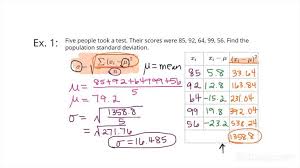 Ex. 1: Five people took a test. Their scores were 85, 92, 64, 99, 56. Find the
population standard deviation.
σ = √(Σ(xᵢ - μ)² / n)
μ = mean
μ = (85+92+64+99+56) / 5
μ = 79.2
σ = √(1358.8 / 5)
= √271.76
σ = 16.485
xᵢ | xᵢ - μ | (xᵢ - μ)²
85 | 5.8 | 33.64
92 | 12.8 | 163.84
64 | -15.2 | 231.04
99 | 19.8 | 392.04
56 | -23.2 | 538.24
1358.8